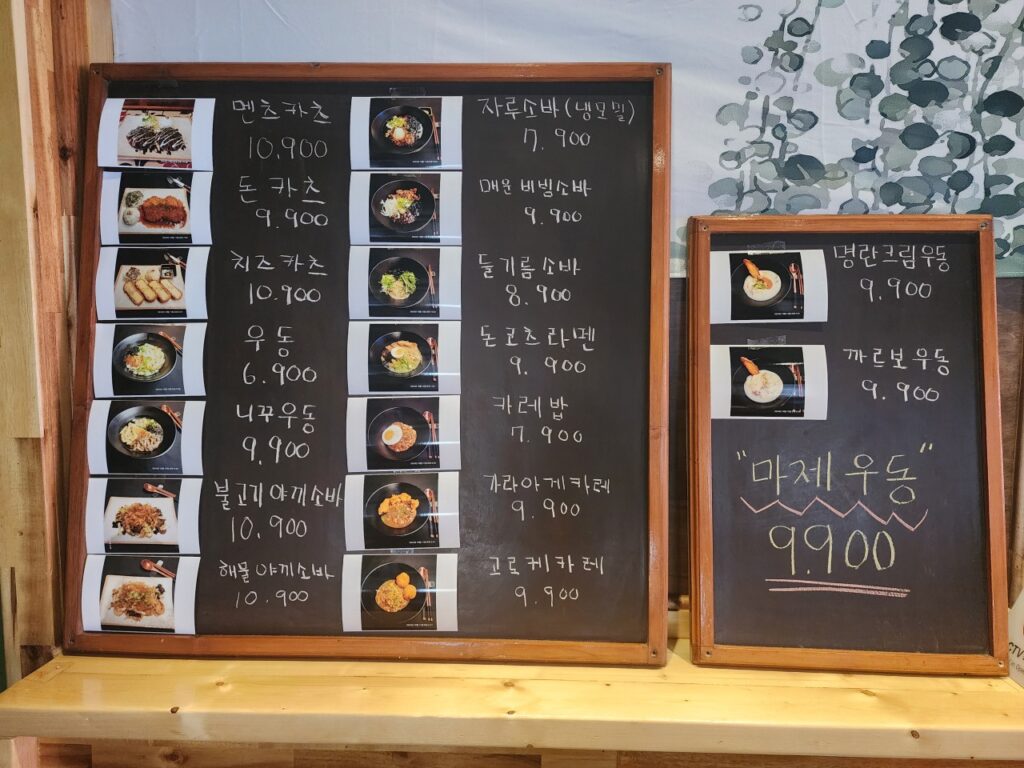 멘츠카츠
10.900
돈 카츠
9.900
치즈카츠
10.900
우동
6.900
니꾸우동
9.900
불고기야끼소바
10.900
해물야끼소바
10.900
자루소바(냉모밀)
7.900
매운비빔소바
9.900
들기름소바
8.900
돈코츠라멘
9.900
카레밥
7.900
가라아게카레
9.900
고로케카레
9.900
명란크림우동
9.900
까르보우동
9.900
"마제우동"
9.900